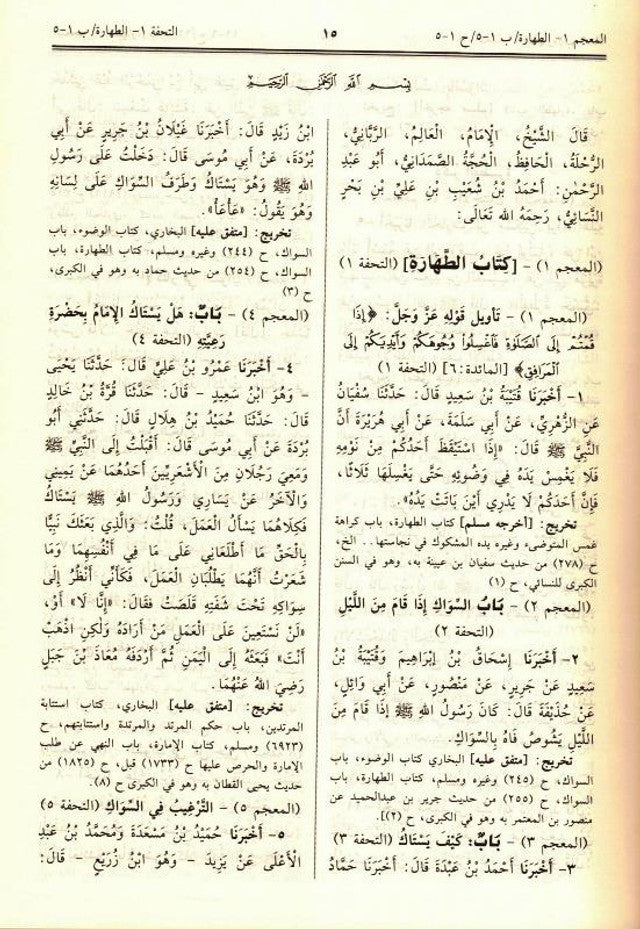 المعجم ١- الطهارة/ ب ١-٥/ ح ١-٥
١٥
التحفة ١- الطهارة/ ب ١-٥
بِسْمِ اللَّهِ الرَّحْمَٰنِ الرَّحِيمِ
قَالَ الشَّيْخُ، الْإِمَامُ، الْعَالِمُ، الرَّبَّانِيُّ،
الرُّحْلَةُ، الْحَافِظُ، الْحُجَّةُ الصَّمَدَانِيُّ، أَبُو عَبْدِ
الرَّحْمٰنِ: أَحْمَدُ بْنُ شُعَيْبِ بْنِ عَلِيِّ بْنِ بَحْرٍ
النَّسَائِيُّ، رَحِمَهُ الله تَعَالَى:
(المعجم ١) - [كِتَابُ الطَّهَارَةِ] (التحفة ١)
(المعجم ١) - تأويل قَوْلِهِ عَزَّ وَجَلَّ: ﴿إِذَا
قُمْتُمْ إِلَى الصَّلَوٰةِ فَاغْسِلُوا وُجُوهَكُمْ وَأَيْدِيَكُمْ إِلَى
الْمَرَافِقِ﴾ [المائدة:٦] (التحفة ١)
١- أَخْبَرَنَا قُتَيْبَةُ بْنُ سَعِيدٍ قَالَ: حَدَّثَنَا سُفْيَانُ
عَنِ الزُّهْرِيِّ، عَنْ أَبِي سَلَمَةَ، عَنْ أَبِي هُرَيْرَةَ أَنَّ
النَّبِيَّ ﷺ قَالَ: «إِذَا اسْتَيْقَظَ أَحَدُكُمْ مِنْ نَوْمِهِ
فَلَا يَغْمِسْ يَدَهُ فِي وَضُوئِهِ حَتَّى يَغْسِلَهَا ثَلَاثًا،
فَإِنَّ أَحَدَكُمْ لَا يَدْرِي أَيْنَ بَاتَتْ يَدُهُ».
تخريج: [أخرجه مسلم] كتاب الطهارة، باب كراهة
غمس المتوضىء وغيره يده المشكوك في نجاستها.. الخ،
ح (٢٧٨) من حديث سفيان بن عيينة به، وهو في السنن
الكبرى للنسائي، ح (١)
(المعجم ٢) - بَابُ السِّوَاكِ إِذَا قَامَ مِنَ اللَّيْلِ
(التحفة ٢)
٢- أَخْبَرَنَا إِسْحَاقُ بْنُ إِبْرَاهِيمَ وَقُتَيْبَةُ بْنُ
سَعِيدٍ عَنْ جَرِيرٍ، عَنْ مَنْصُورٍ، عَنْ أَبِي وَائِلٍ،
عَنْ حُذَيْفَةَ قَالَ: كَانَ رَسُولُ اللهِ ﷺ إِذَا قَامَ مِنَ
اللَّيْلِ يَشُوصُ فَاهُ بِالسِّوَاكِ.
تخريج: [متفق عليه] البخاري كتاب الوضوء، باب
السواك، ح (٢٤٥) وغيره ومسلم، كتاب الطهارة، باب
السواك، ح (٢٥٥) من حديث جرير بن عبدالحميد عن
منصور بن المعتمر به وهو في الكبرى، ح (٢)].
(المعجم ٣) - بَابٌ: كَيْفَ يَسْتَاكُ (التحفة ٣)
٣- أَخْبَرَنَا أَحْمَدُ بْنُ عَبْدَةَ قَالَ: أَخْبَرَنَا حَمَّادُ
ابْنُ زَيْدٍ قَالَ: أَخْبَرَنَا غَيْلَانُ بْنُ جَرِيرٍ عَنْ أَبِي
بُرْدَةَ، عَنْ أَبِي مُوسَى قَالَ: دَخَلْتُ عَلَى رَسُولِ
اللهِ ﷺ وَهُوَ يَسْتَاكُ وَطَرَفُ السِّوَاكِ عَلَى لِسَانِهِ
وَهُوَ يَقُولُ: «عَأْعَأْ».
تخريج: [متفق عليه] البخاري، كتاب الوضوء، باب
السواك، ح (٢٤٤) وغيره ومسلم، كتاب الطهارة، باب
السواك، ح (٢٥٤) من حديث حماد به وهو في الكبرى،
ح (٣)
(المعجم ٤) - بَابٌ: هَلْ يَسْتَاكُ الْإِمَامُ بِحَضْرَةِ
رَعِيَّتِهِ (التحفة ٤)
٤- أَخْبَرَنَا عَمْرُو بْنُ عَلِيٍّ قَالَ: حَدَّثَنَا يَحْيَى
- وَهُوَ ابْنُ سَعِيدٍ - قَالَ: حَدَّثَنَا قُرَّةُ بْنُ خَالِدٍ
قَالَ: حَدَّثَنَا حُمَيْدُ بْنُ هِلَالٍ قَالَ: حَدَّثَنِي أَبُو
بُرْدَةَ عَنْ أَبِي مُوسَى قَالَ: أَقْبَلْتُ إِلَى النَّبِيِّ ﷺ
وَمَعِيَ رَجُلَانِ مِنَ الْأَشْعَرِيِّينَ أَحَدُهُمَا عَنْ يَمِينِي
وَالْآخَرُ عَنْ يَسَارِي وَرَسُولُ اللهِ ﷺ يَسْتَاكُ
فَكِلَاهُمَا يَسْأَلُ الْعَمَلَ، قُلْتُ: وَالَّذِي بَعَثَكَ نَبِيًّا
بِالْحَقِّ مَا أَطْلَعَانِي عَلَى مَا فِي أَنْفُسِهِمَا وَمَا
شَعَرْتُ أَنَّهُمَا يَطْلُبَانِ الْعَمَلَ، فَكَأَنِّي أَنْظُرُ إِلَى
سِوَاكِهِ تَحْتَ شَفَتِهِ قَلَصَتْ فقَالَ: «إِنَّا لَا» أَوْ،
«لَنْ نَسْتَعِينَ عَلَى الْعَمَلِ مَنْ أَرَادَهُ وَلٰكِنِ اذْهَبْ
أَنْتَ» فَبَعَثَهُ إِلَى الْيَمَنِ ثُمَّ أَرْدَفَهُ مُعَاذَ بْنَ جَبَلٍ
رَضِيَ اللهُ عَنْهُمَا.
تخريج: [متفق عليه] البخاري، كتاب استتابة
المرتدين، باب حكم المرتد والمرتدة واستتابتهم، ح
(٦٩٢٣) ومسلم، كتاب الإمارة، باب النهي عن طلب
الإمارة والحرص عليها ح (١٧٣٣) قبل، ح (١٨٢٥) من
حديث يحيى القطان به وهو في الكبرى ح (٨).
(المعجم ٥) - التَّرْغِيبُ فِي السِّوَاكِ (التحفة ٥)
٥- أَخْبَرَنَا حُمَيْدُ بْنُ مَسْعَدَةَ وَمُحَمَّدُ بْنُ عَبْدِ
الْأَعْلَى عَنْ يَزِيدَ - وَهُوَ ابْنُ زُرَيْعٍ - قَالَ: